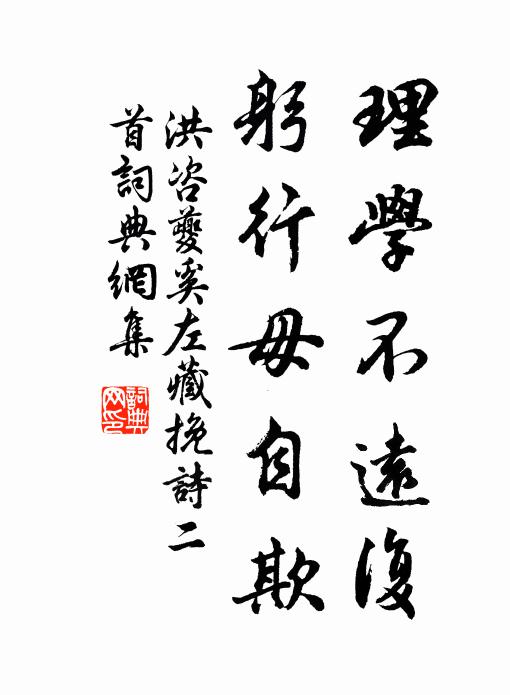 理學不遠復
躬行毋自欺
洪咨夔奚左藏挽詩二
首詞典網集
詞典
网印